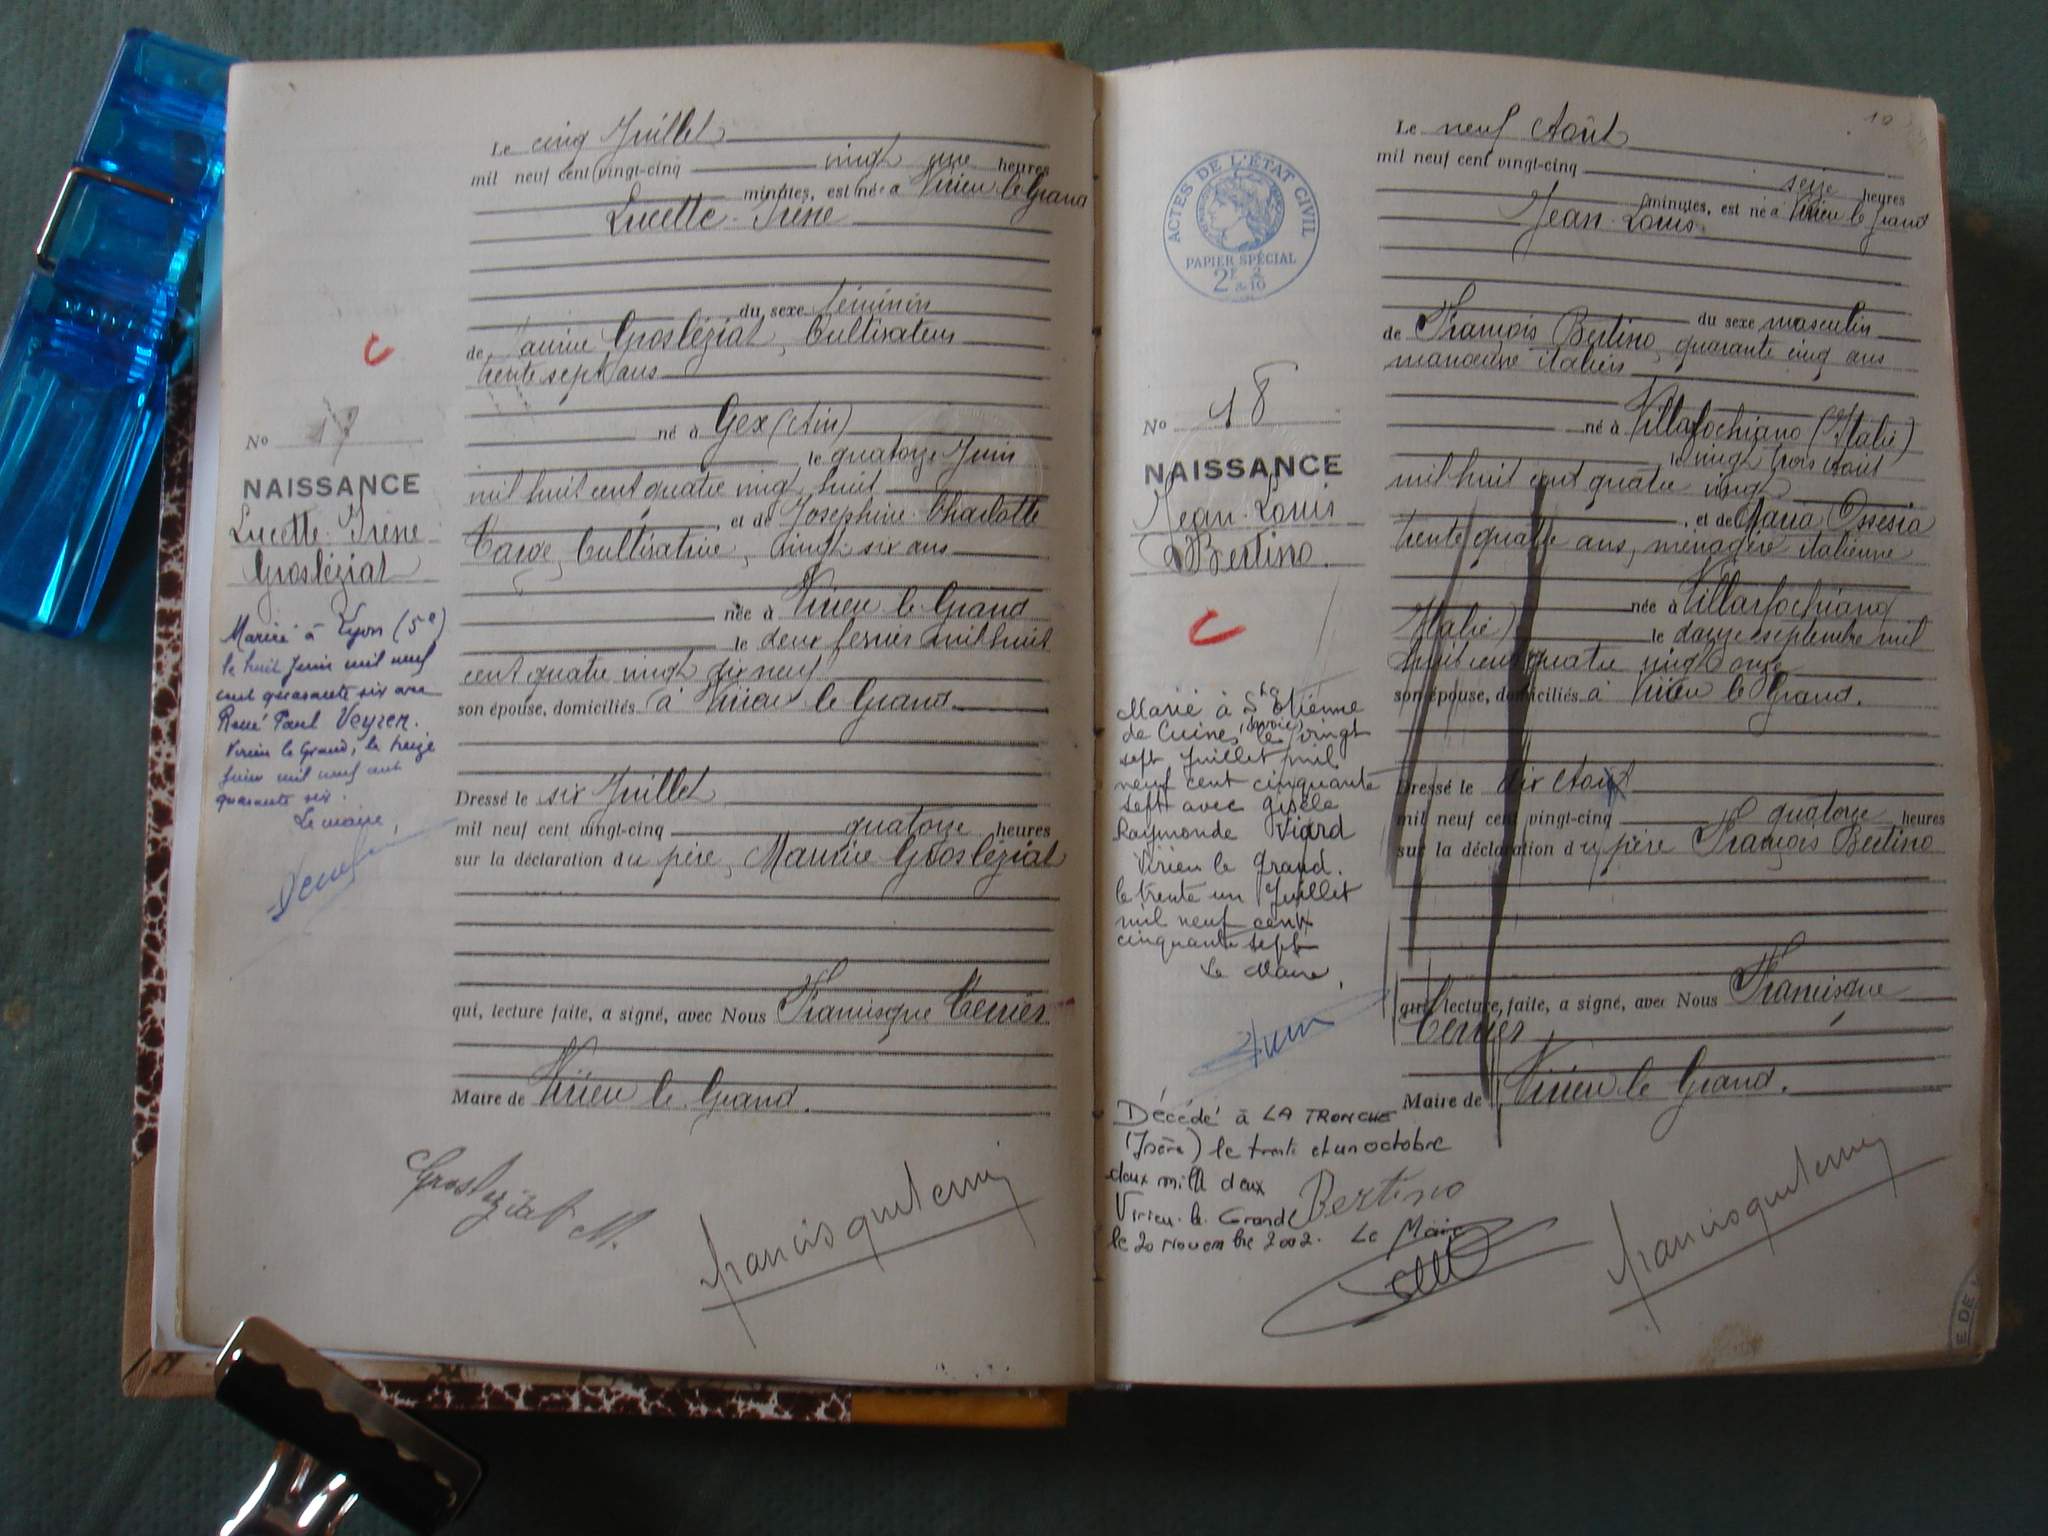 Le cinq Juillet
mil neuf cent vingt-cinq vingt une heures
minutes, est née à Virieu le Grand
Lucette Irène
du sexe féminin
de Maurice Grosléziat, Cultivateur
trente sept ans
né à Gex (Ain)
le quatorze Juin
mil huit cent quatre vingt huit
et de Joséphine Charlotte
Cultivatrice, vingt six ans
née à Virieu le Grand
le deux février mil huit
cent quatre vingt dix neuf
son épouse, domiciliés à Virieu le Grand.
Dressé le six Juillet
mil neuf cent vingt-cinq quatorze heures
sur la déclaration du père, Maurice Grosléziat
qui, lecture faite, a signé, avec Nous Francisque Terrier
Maire de Virieu le Grand.
Grosléziat M.
francisque terrier
No 17
NAISSANCE
Lucette Irène
Grosléziat
Mariée à Lyon (5e)
le huit Juin mil neuf
cent quarante six avec
René Paul Veyren.
Virieu le Grand, le treize
Juin mil neuf cent
quarante six.
Le maire,
19
ACTES DE L'ÉTAT CIVIL
PAPIER SPÉCIAL
2F &2/10
No 18
NAISSANCE
Jean-Louis
Bertino.
Marié à St Etienne
de Cuines, (Savoie) le vingt
sept Juillet mil
neuf cent cinquante
sept avec Gisèle
Raymonde Viard
Virieu le Grand.
le trente un Juillet
mil neuf cent
cinquante sept
Le Maire,
Décédé à LA TRONCHE
(Isère) le trente et un octobre
deux mille deux
Virieu-le-Grand
le 20 Novembre 2002. Le Maire
Le neuf Août
mil neuf cent vingt-cinq seize heures
minutes, est né à Virieu le Grand
Jean-Louis
du sexe masculin
de François Bertino, quarante cinq ans
manoeuvre italien
né à Villarfochiano (Italie)
le vingt trois Août
mil huit cent quatre vingt
, et de Maria Ossesia
trente quatre ans, ménagère italienne
née à Villarfochiano
(Italie) le douze septembre mil
huit cent quatre vingt onze
son épouse, domiciliés à Virieu le Grand.
Dressé le dix Août
mil neuf cent vingt-cinq quatorze heures
sur la déclaration du père François Bertino
qui, lecture faite, a signé, avec Nous Francisque
Terrier
Maire de Virieu le Grand.
Bertino
francisque terrier
E DE